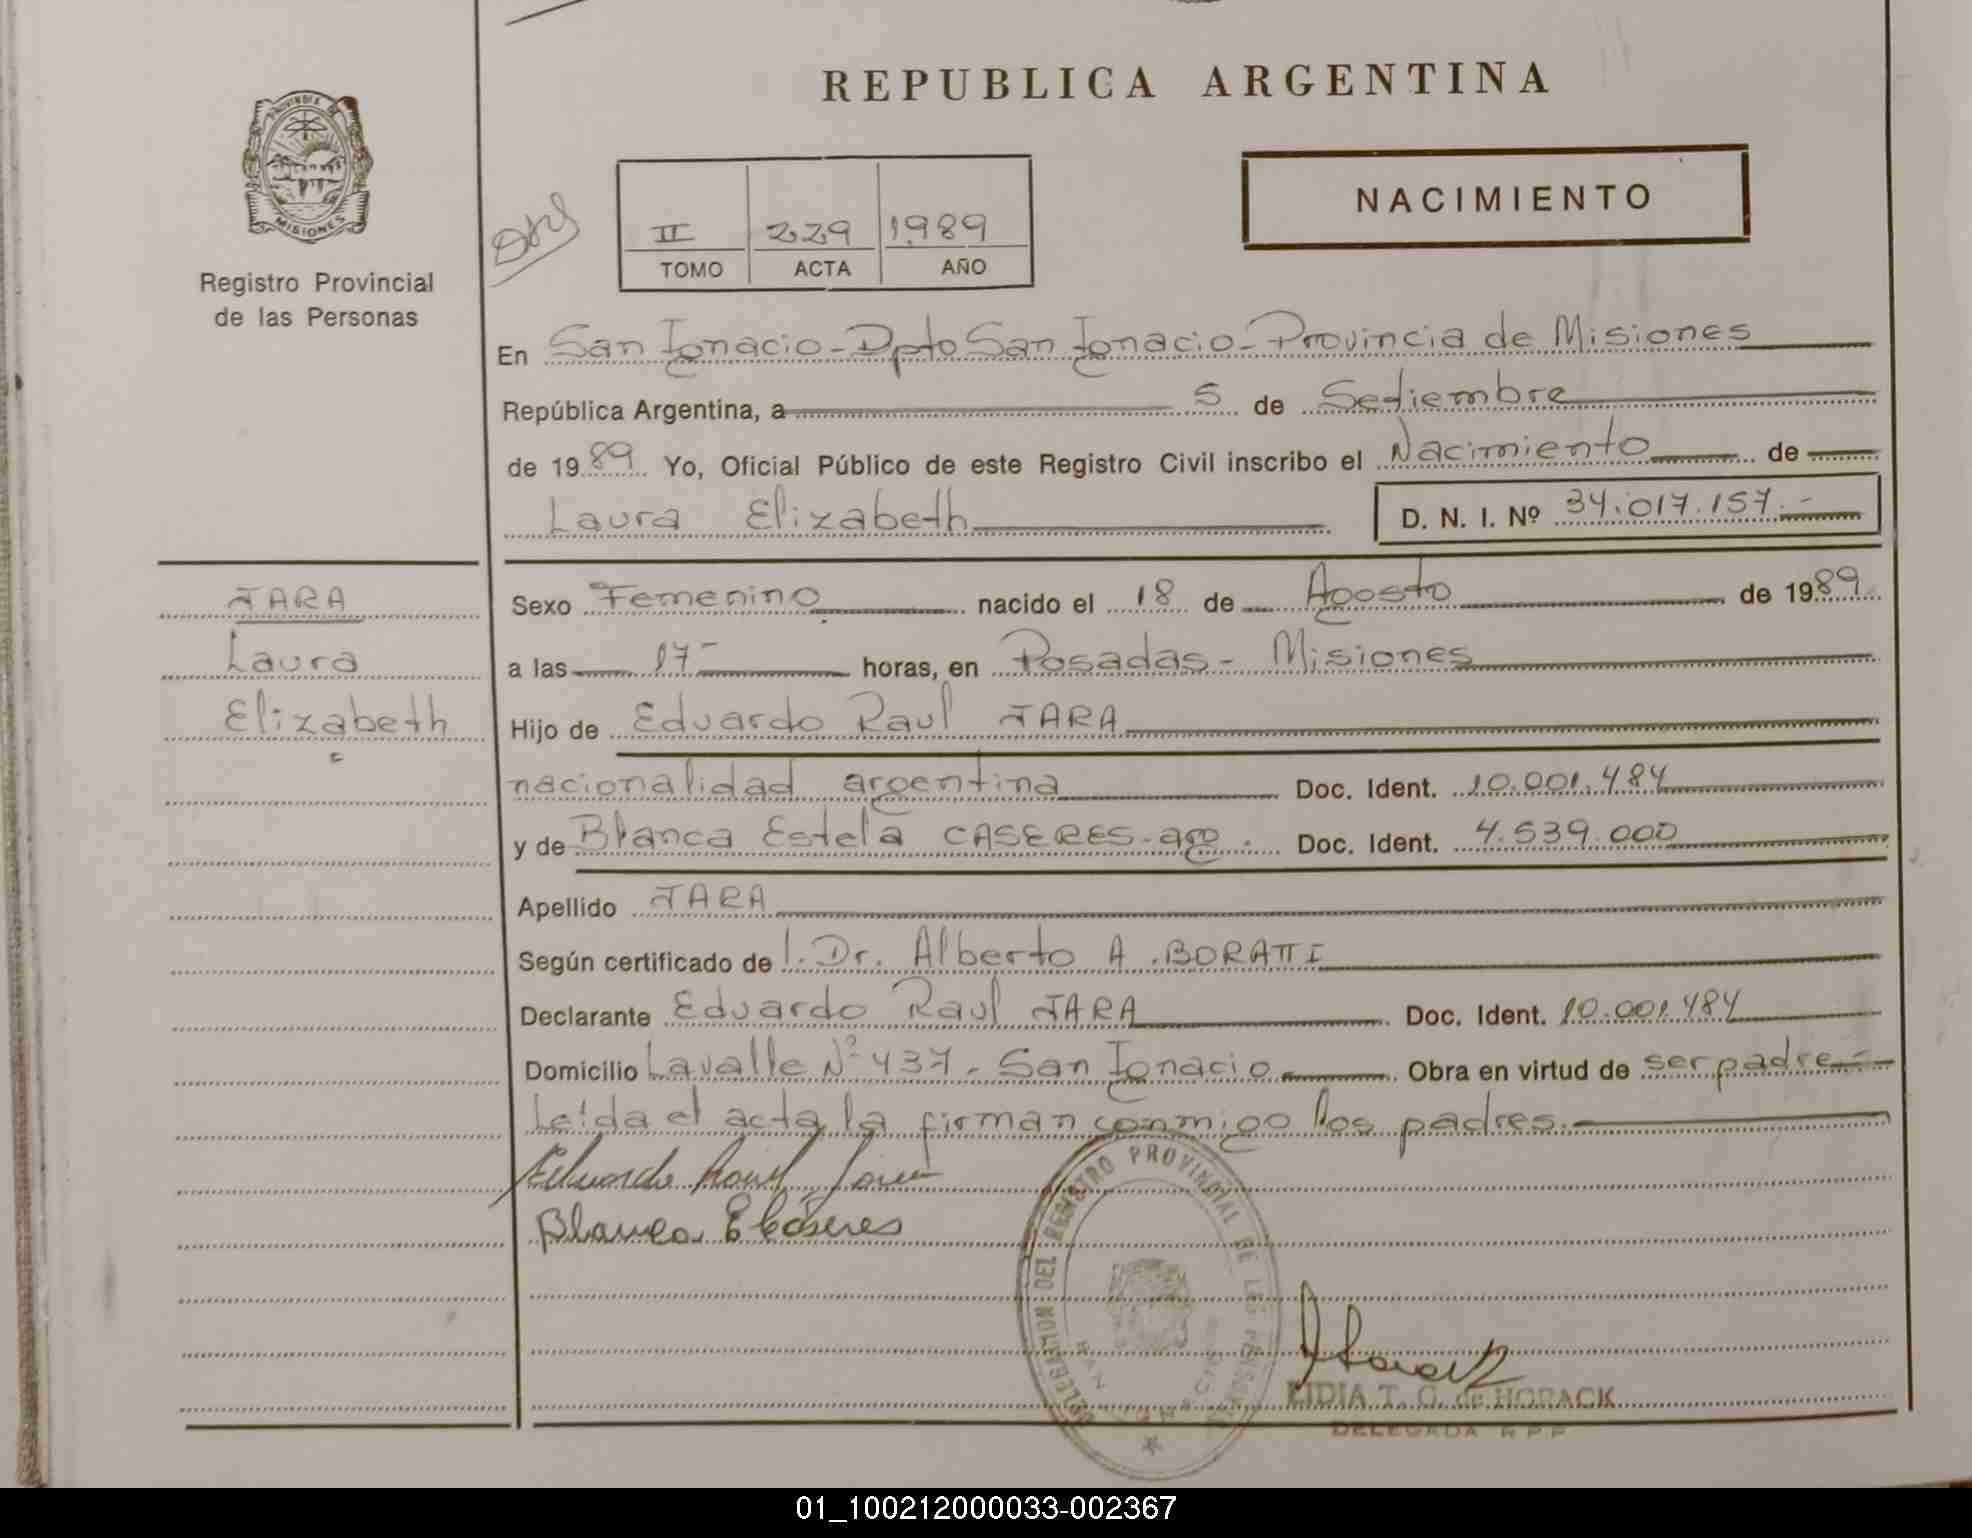 REPUBLICA ARGENTINA
PROVINCIA DE
MISIONES
Registro Provincial
de las Personas
NACIMIENTO
II 229 1989
TOMO ACTA AÑO
En San Ignacio - Dpto San Ignacio - Provincia de Misiones
República Argentina, a 5 de Setiembre
de 1989 Yo, Oficial Público de este Registro Civil inscribo el Nacimiento de
Laura Elizabeth D. N. I. Nº 34.017.157.-
JARA
Laura
Elizabeth
Sexo Femenino nacido el 18 de Agosto de 1989
a las 17 horas, en Posadas - Misiones
Hijo de Eduardo Raul JARA
nacionalidad argentina Doc. Ident. 10.001.484
y de Blanca Estela CASERES - arg. Doc. Ident. 4.539.000
Apellido JARA
Según certificado de l. Dr. Alberto A. BORATTI
Declarante Eduardo Raul JARA Doc. Ident. 10.001.484
Domicilio Lavalle Nº 437 - San Ignacio Obra en virtud de ser padre
Leída el acta, la firman conmigo los padres.
Eduardo Raul Jara
Blanca E Cáseres
DELEGACION DEL REGISTRO PROVINCIAL DE LAS PERSONAS
SAN IGNACIO
LIDIA T. G. de HORACK
DELEGADA R.P.P.
01_100212000033-002367